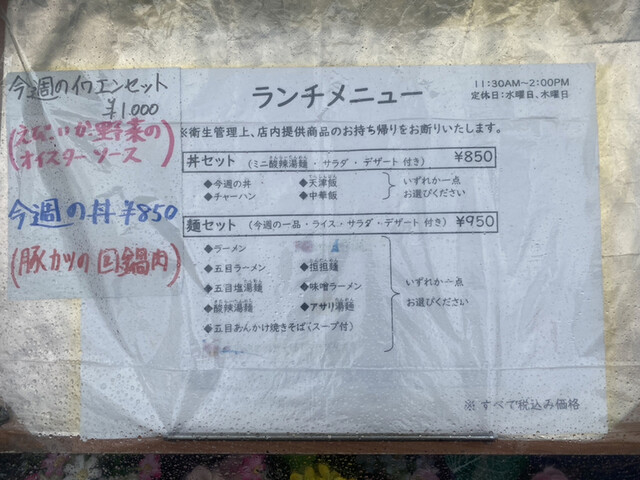 今週のイワエンセット
¥1,000
(えびといか野菜の
オイスターソース)
今週の丼 ¥850
(豚カツの回鍋肉)
ランチメニュー
11:30AM~2:00PM
定休日:水曜日、木曜日
※衛生管理上、店内提供商品のお持ち帰りをお断りいたします。
丼セット (ミニ酸辣湯麺・サラダ・デザート付き) ¥850
◆今週の丼 ◆天津飯
◆チャーハン ◆中華飯
いずれか一点
お選びください
麺セット (今週の一品・ライス・サラダ・デザート付き) ¥950
◆ラーメン
◆五目ラーメン ◆担担麺
◆五目塩湯麺 ◆味噌ラーメン
◆酸辣湯麺 ◆アサリ湯麺
◆五目あんかけ焼きそば(スープ付)
いずれか一点
お選びください
※すべて税込み価格